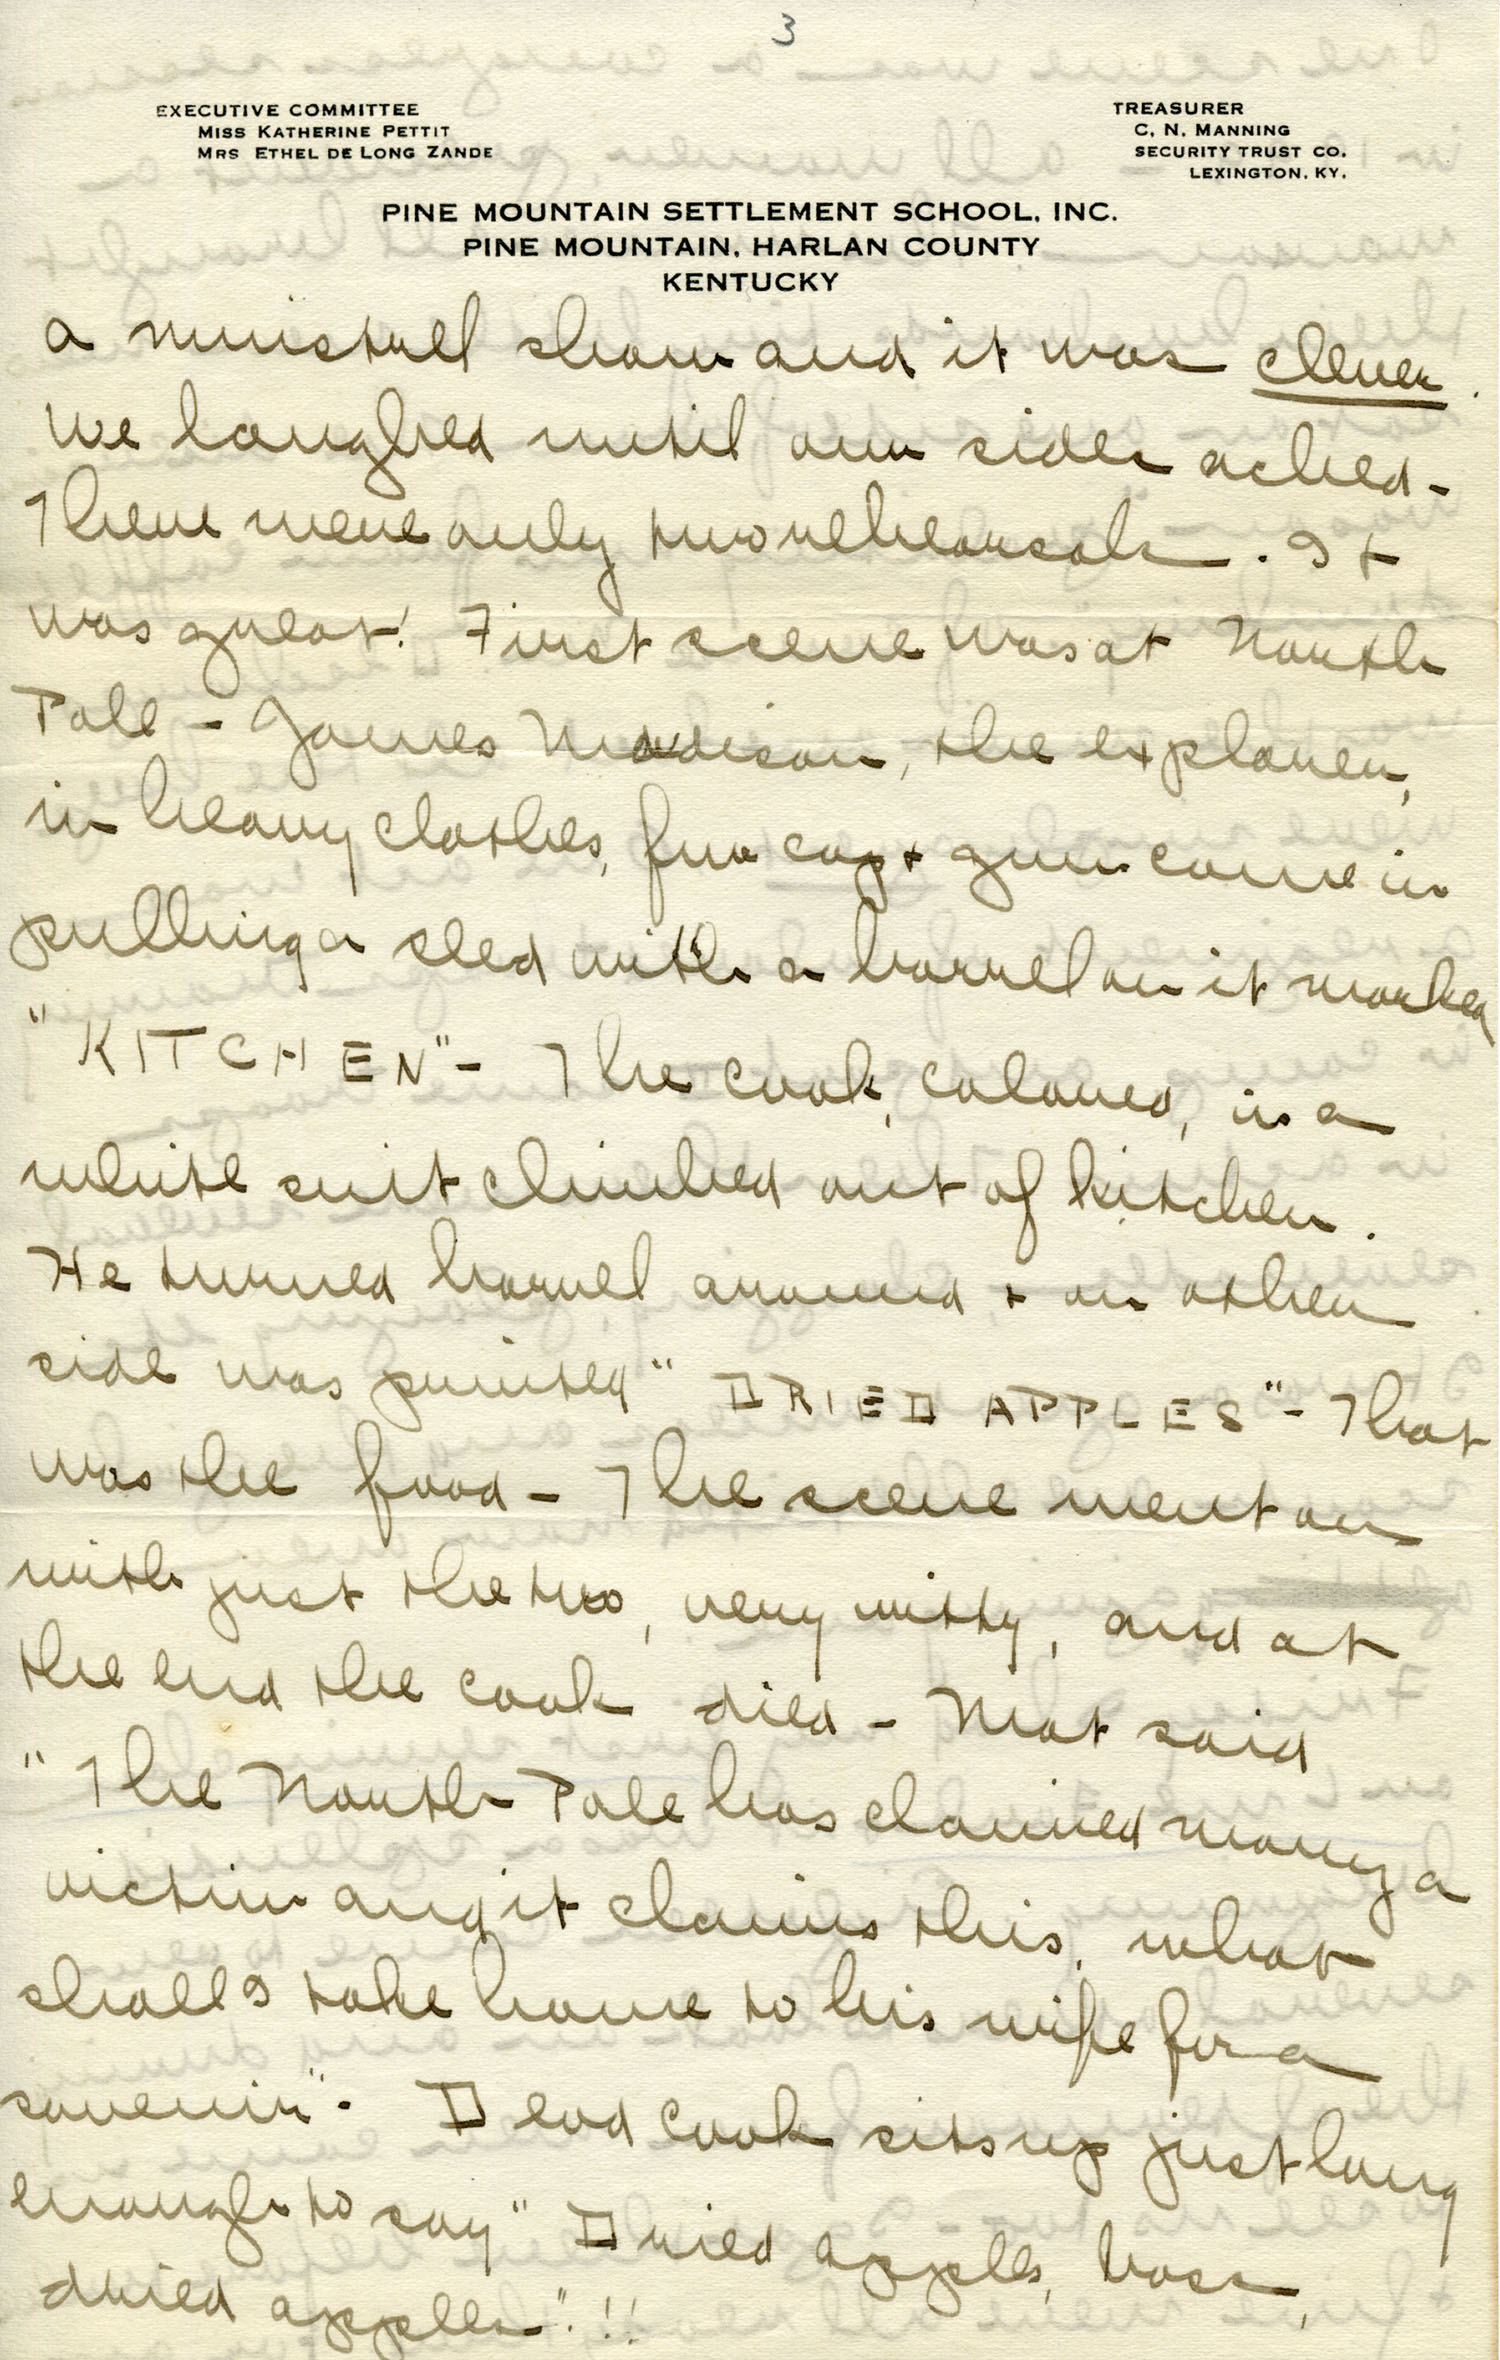 3
EXECUTIVE COMMITTEE
MISS KATHERINE PETTIT
MRS ETHEL DE LONG ZANDE
TREASURER
C. N. MANNING
SECURITY TRUST CO.
LEXINGTON, KY.
PINE MOUNTAIN SETTLEMENT SCHOOL, INC.
PINE MOUNTAIN, HARLAN COUNTY
KENTUCKY
a minstrell show and it was clever.
We laughed until our sides ached -
There were only two rehearsals. It
was great! First scene was at North
Pole - James Madison, the explorer,
in heavy clothes, fur cap + gun came in
pulling a sled with a barrel on it marked
"KITCHEN" - The cook, colored, in a
white suit climbed out of kitchen.
He turned barrel around + on other
side was printed "DRIED APPLES" - That
was the food - The scene went on
with just the two, very witty, and at
the end the cook died - Mat said
"The North Pole has claimed many a
victim and it claims this, what
shall I take home to his wife for a
souvenir". Dead cook sits up just long
enough to say "Dried apples, boss,
dried apples".!!